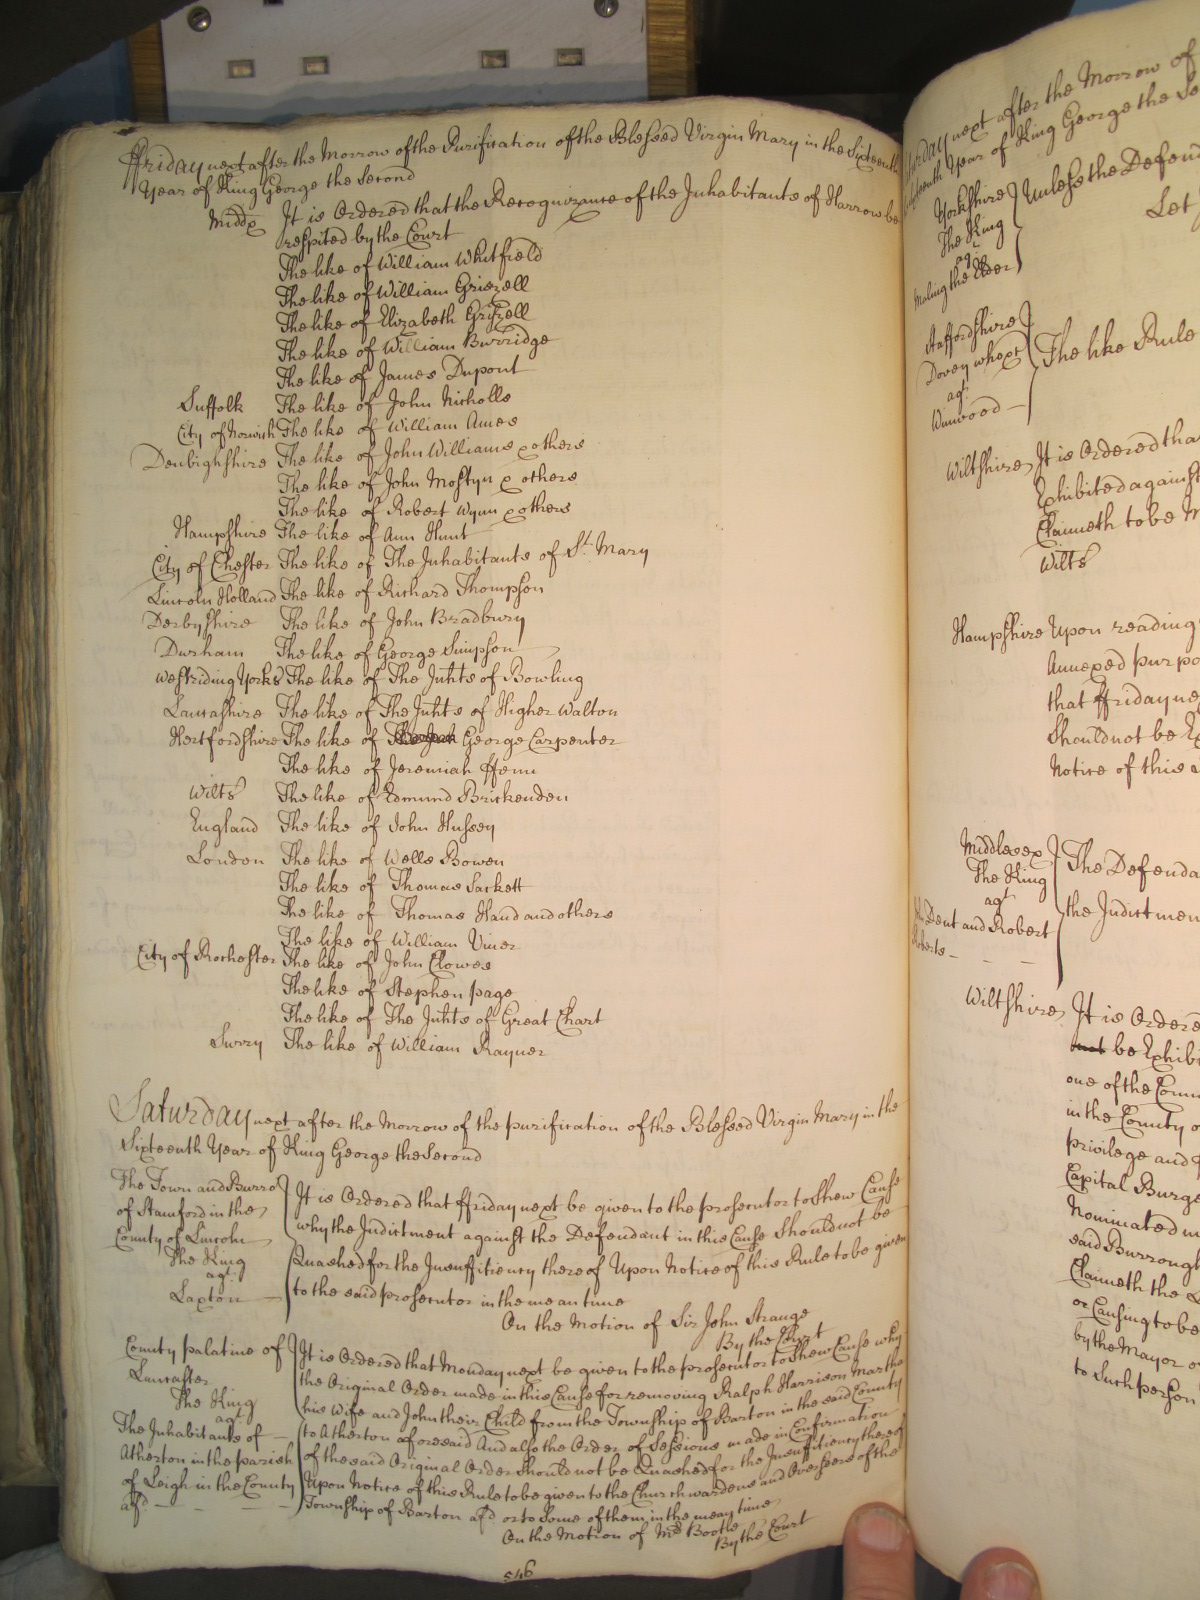 Ffriday next after the Morrow of the Purification of the Blessed Virgin Mary in the Sixteenth
Year of King George the Second
Middx It is Ordered that the Recognizance of the Inhabitants of Harrow be
respited by the Court
The like of William Whitfield
The like of William Griezell
The like of Elizabeth Griezell
The like of William Burridge
The like of James Dupont
Suffolk The like of John Nicholls
City of Norwich The like of William Ames
Denbighshire The like of John Williams & others
The like of John Mostyn & others
The like of Robert Wynn & others
Hampshire The like of Ann Hunt
City of Chester The like of The Inhabitants of St. Mary
Lincoln Holland The like of Richard Thompson
Derbyshire The like of John Bradbury
Durham The like of George Simpson
Westriding Yorks The like of The Inhts of Bowling
Lancashire The like of The Inhts of Higher Walton
Hertfordshire The like of George Carpenter
The like of Jeremiah Ffenn
Wilts The like of Edmund Brickenden
England The like of John Hussey
London The like of Wells Bowen
The like of Thomas Sackett
The like of Thomas Hand and others
The like of William Viner
City of Rochester The like of John Clowes
The like of Stephen page
The like of The Inhts of Great Chart
Surry The like of William Rayner
Saturday next after the Morrow of the purification of the Blessed Virgin Mary in the
Sixteenth Year of King George the Second
The Town and Burro
of Stamford in the
County of Lincoln
The King
agt
Laxton
It is Ordered that Ffriday next be given to the prosecutor to Shew Cause
why the Indictment against the Defendant in this Cause Should not be
Quashed for the Insufficiency thereof Upon Notice of this Rule to be given
to the said prosecutor in the mean time
On the Motion of Sir John Strange
By the Court
County palatine of
Lancaster
The King
agt
The Inhabitants of
Atherton in the parish
of Leigh in the County
afd
It is Ordered that Monday next be given to the prosecutor to Shew Cause why
the Original Order made in this Cause for removing Ralph Harrison Martha
his Wife and John their Child from the Township of Barton in the said County
to Atherton aforesaid And also the Order of Sessions made in Confirmation
of the said Original Order Should not be Quashed for the Insufficiency thereof
Upon Notice of this Rule to be given to the Churchwardens and Overseers of the
Township of Barton afd or to Some of them in the mean time
On the Motion of Mr. Bootle
By the Court
546
next after the Morrow of
Year of King George the Se
Yorkshire
The King
agt
the Elder
Unless the Defen
Let
Staffordshire
agt
The like Rule
Wiltshire It is Ordered tha
Exhibited against
Claimeth to be M
Wilts
Hampshire Upon reading
Annexed purpo
that Ffriday ne
Should not be E
Notice of this
Middlesex
The King
agt
Dent and Robert
Roberts
The Defenda
the Indictmen
Wiltshire It is Ordere
not be Exhibi
one of the Com
in the County o
privilege and
Capital Burge
Nominated
said Burrough
Claimeth the
or Causing to be
by the Mayor o
to Such person